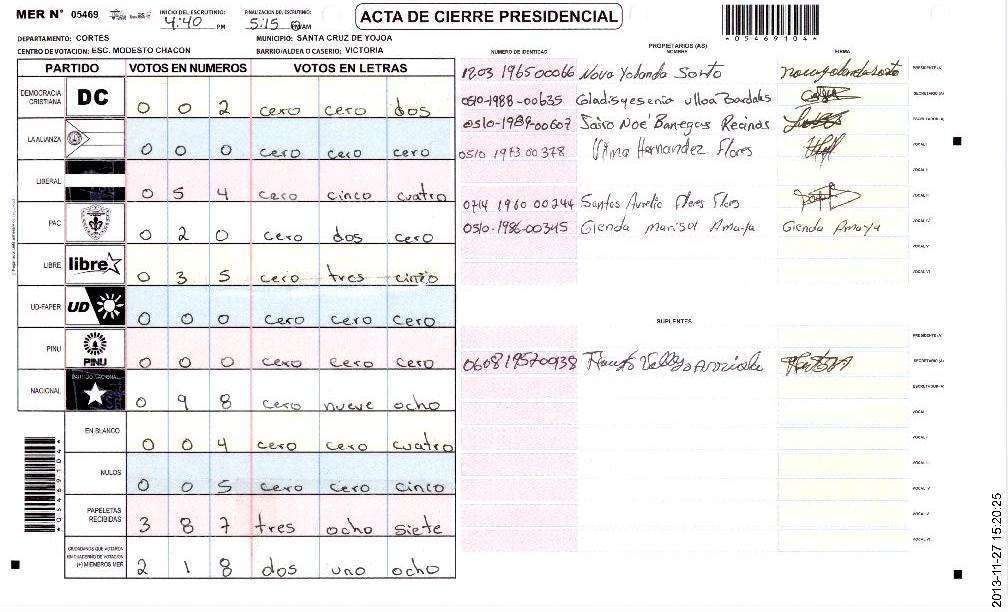 MER N° 05469
INICIO DEL ESCRUTINIO: 4:40 PM
FINALIZACION DEL ESCRUTINIO: 5:15 PM/AM
ACTA DE CIERRE PRESIDENCIAL
*05469104*
DEPARTAMENTO: CORTES
MUNICIPIO: SANTA CRUZ DE YOJOA
CENTRO DE VOTACION: ESC. MODESTO CHACON
BARRIO/ALDEA O CASERIO: VICTORIA
PARTIDO VOTOS EN NUMEROS VOTOS EN LETRAS
DEMOCRACIA CRISTIANA DC 0 0 2 cero cero dos
LA ALIANZA 0 0 0 cero cero cero
LIBERAL 0 5 4 cero cinco cuatro
PAC 0 2 0 cero dos cero
LIBRE libre 0 3 5 cero tres cinco
UD-FAPER UD 0 0 0 cero cero cero
PINU PINU 0 0 0 cero cero cero
NACIONAL 0 9 8 cero nueve ocho
EN BLANCO 0 0 4 cero cero cuatro
NULOS 0 0 5 cero cero cinco
PAPELETAS RECIBIDAS 3 8 7 tres ocho siete
CIUDADANOS QUE VOTARON EN CUADERNO DE VOTACION (+) MIEMBROS MER 2 1 8 dos uno ocho
*05469104*
PROPIETARIOS (AS)
NUMERO DE IDENTIDAD NOMBRE FIRMA
1203 1965 00066 Nova Yolanda Sorto PRESIDENTE (A)
0510-1988-00635 Gladis yesenia ulloa Bardales SECRETARIO (A)
0510-1989-00607 Jairo Noe Banegas Recinos ESCRUTADOR (A)
0510 1973 00378 Vilma Hernandez Flores VOCAL I
VOCAL II
0714 1960 00244 Santos Aurelio Flores Flores VOCAL III
0510-1986-00345 Glenda Marisol Amaya Glenda Amaya VOCAL IV
VOCAL V
VOCAL VI
SUPLENTES
PRESIDENTE (A)
0608 1957 00938 SECRETARIO (A)
ESCRUTADOR (A)
VOCAL I
VOCAL II
VOCAL III
VOCAL IV
VOCAL V
VOCAL VI
2013-11-27 15:20:25